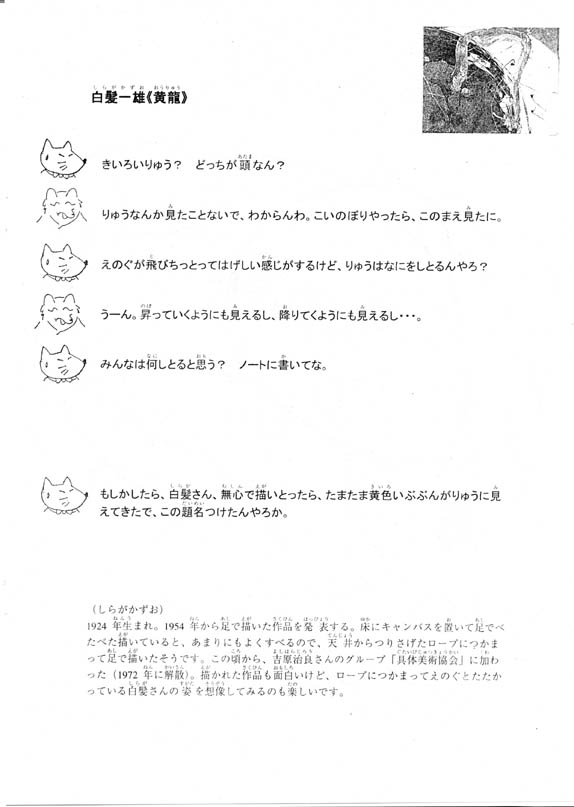 白髪一雄《黄龍》
きいろいりゅう？　どっちが頭なん？
りゅうなんか見たことないで、わからんわ。こいのぼりやったら、このまえ見たに。
えのぐが飛びちっとってはげしい感じがするけど、りゅうはなにをしとるんやろ？
うーん。昇っていくようにも見えるし、降りてくようにも見えるし・・・。
みんなは何しとると思う？　ノートに書いてな。
もしかしたら、白髪さん、無心で描いとったら、たまたま黄色いぶぶんがりゅうに見
えてきたで、この題名つけたんやろか。
（しらがかずお）
1924 年生まれ。1954 年から足で描いた作品を発表する。床にキャンバスを置いて足でべ
たべた描いていると、あまりにもよくすべるので、天井からつりさげたロープにつかま
って足で描いたそうです。この頃から、吉原治良さんのグループ「具体美術協会」に加わ
った（1972 年に解散）。描かれた作品も面白いけど、ロープにつかまってえのぐとたたか
っている白髪さんの姿を想像してみるのも楽しいです。